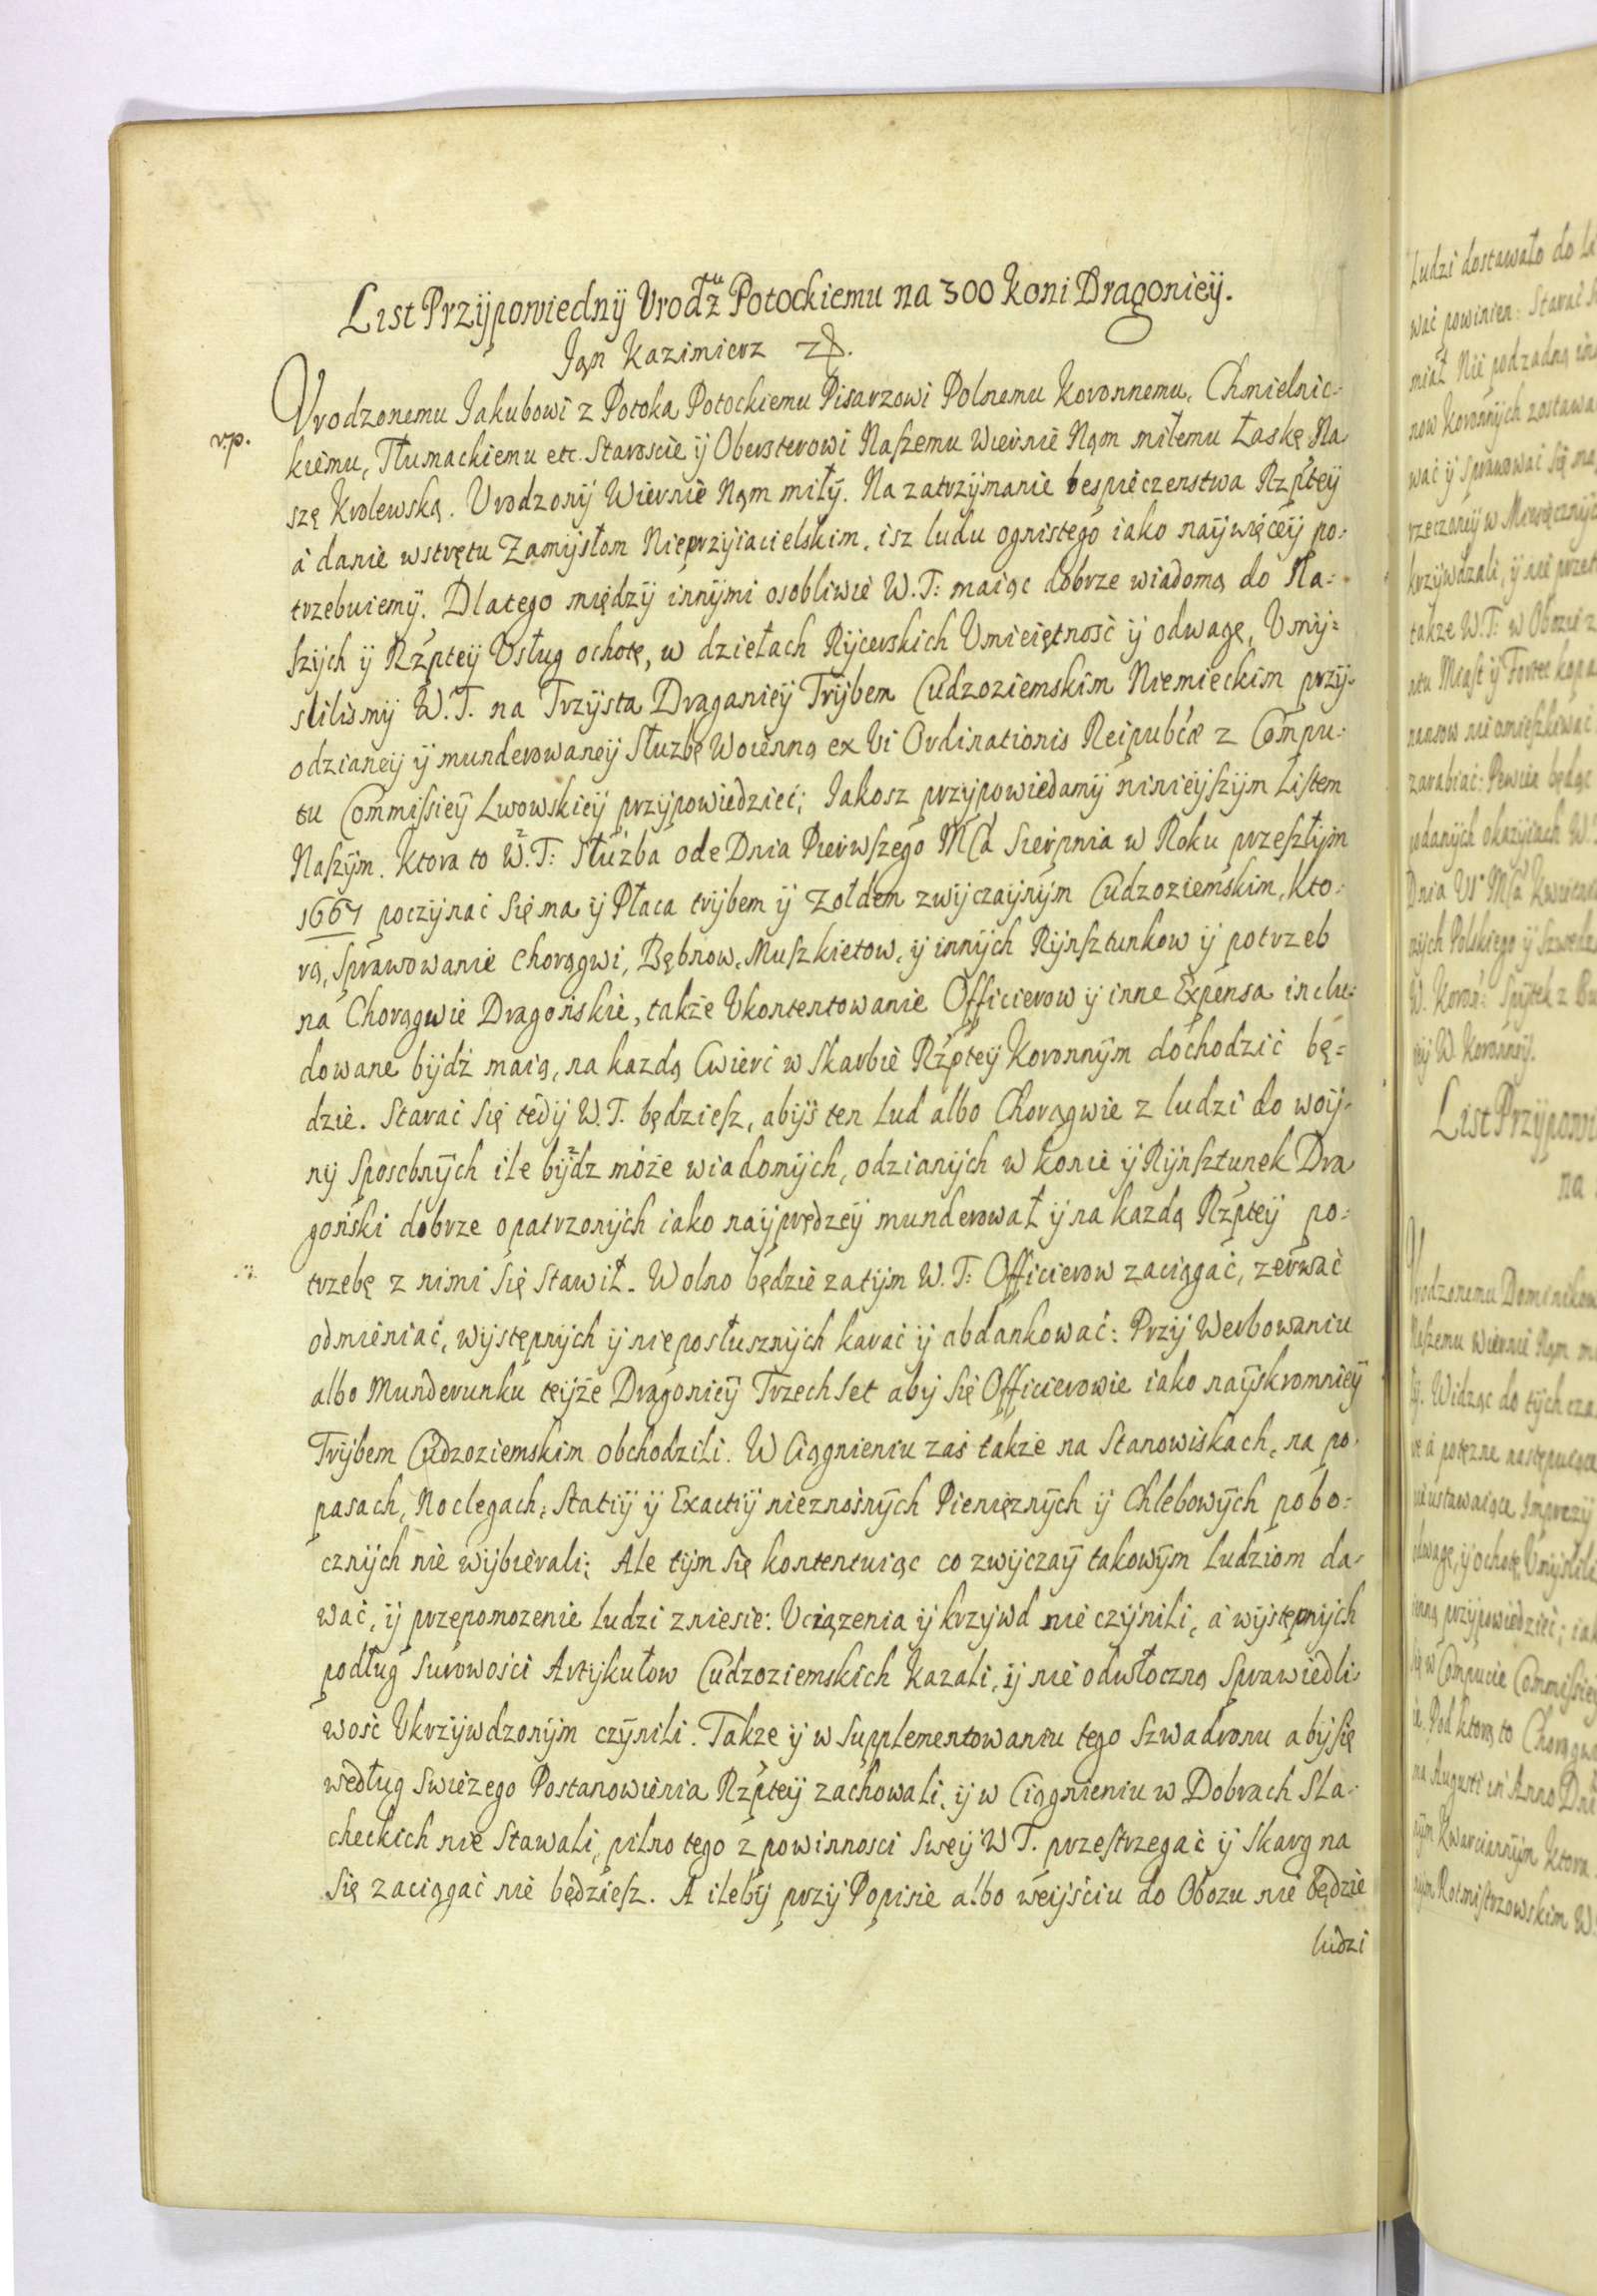 List Przÿpowiednÿ Vrodz̃u Potockiemu na 300 koni Dragonieÿ.
Jąn Kazimierz
Vrodzonemu Jakubowi z Potoka Potockiemu Pisarzowi Polnemu Koronnemu, Chmielnic-
v.p.
kiemu, Tłumackiemu etc. Staroscie ÿ Obersterowi Naszemu Wiernie Nąm miłemu Łaskę Na
szę Krolewską. Vrodzonÿ Wiernie Nąm miłÿ. Na zatrzÿmanie bespieczenstwa Rzṕteÿ
á danie wstrętu Zamÿsłom Nieprzÿiacielskim, isz ludu ognistego iako naÿwięceÿ po-
trzebuiemÿ. Dlatego międzÿ innÿmi osobliwie W.T: maiąc dobrze wiadomą do Na-
szÿch ÿ Rzṕteÿ Vsług ochotę, w dziełach Rÿcerskich Vmieiętność ÿ odwagę, Vmÿ-
slilismÿ W.T. na Trzÿsta Draganieÿ Trÿbem Cudzoziemskim Niemieckim przÿ-
odzianeÿ ÿ munderowaneÿ Służbę Woienną ex Vi Ordinationis Reipubĺæ z Compu-
tu Commissieÿ Lwowskieÿ przÿpowiedzieć; Jakosz przÿpowiedamÿ ninieÿszÿm Listem
Naszÿm. Ktora to W.T: Służba ode Dnia Pierwszego Mća Sierpnia w Roku przeszłÿm
1667 poczÿnać się ma ÿ Płaca trÿbem ÿ Zołdem zwÿczaÿnÿm Cudzoziemskim, kto-
rą, sprawowanie chorągwi, Bębnow, Muszkietow, ÿ innÿch Rÿnsztunkow ÿ potrzeb
na Chorągwie Dragońskie, także Vkontentowanie Officierow ÿ inne Expensa inclu-
dowane bÿdź maią, na kazdą Cwierć w Skarbie Rzṕteÿ Koronnÿm dochodzić bę-
dzie. Starać się tedÿ W.T. będziesz, abÿś ten Lud albo Chorągwie z ludzi do woÿ-
nÿ sposobnÿch ile bÿdz może wiadomÿch, odzianÿch w konie ÿ Rÿnsztunek Dra
goński dobrze opatrzonÿch iako naÿprędzeÿ munderował ÿ na kazdą Rzṕteÿ po-
trzebę z nimi się stawił. Wolno będzie zatÿm W.T: Officierow zaciągać, zerwać
odmieniać, wÿstępnÿch ÿ nieposłusznÿch karać ÿ abdankować: Przÿ Werbowaniu
albo Munderunku teÿże Dragonieÿ Trzechset abÿ się Officierowie iako naÿskromnieÿ
Trÿbem Cudzoziemskim obchodzili. W Ciągnieniu zaś także na Stanowiskach, na po-
pasach, Noclegach, Statiÿ ÿ Exactiÿ nieznośnÿch Pieniężnÿch ÿ Chlebowÿch pobo-
cznÿch nie wÿbierali; Ale tÿm się kontentuiąc co zwÿczaÿ takowÿm Ludziom da-
wać, ÿ przepomozenie ludzi zniesie: Vciązenia ÿ krzÿwd nie czÿnili, á wÿstępnÿch
podług surowości Artÿkułow Cudzoziemskich Kazali, ÿ nie odwłoczną sprawiedli-
wość Vkrzÿwdzonÿm czÿnili. Takze ÿ w supplementowaniu tego Szwadronu abÿ się
według swieżego Postanowienia Rzṕteÿ zachowali, ÿ w Ciągnieniu w Dobrach Sla-
checkich nie stawali, pilno tego z powinnosci sweÿ W T. przestrzegać ÿ Skarg na
się zaciągać nie będziesz. A ilebÿ przÿ Popisie albo weÿściu do Obozu nie będzie
ludzi
ludzi dostawało do
wać powinien: Starać
miał Nie podzadną
now Koronnÿch zostawa
wać ÿ sprawować się
rzeczoneÿ w
krzÿwdzali, ÿ nie
także W.T: w Obozie z
Miast ÿ Fortec
zarabiać: Pewien będąc
podanÿch okazÿiach W.
Dnia
Polskiego ÿ
W. Koron:
W. Koronneÿ.
List Przÿpowi
na
Vrodzonemu Dominikow
Naszemu Wiernie Nąm
Widząc do tÿch
á potęzne następuiące
nieustawaiące Imprezÿ
odwagę, ÿ ochotę Vmÿślili
przÿpowiedzieć;
w Compucie Commissieÿ
Pod ktorą to Chorągw
Augusti in Anno
Kwarcianÿm Ktora
Rotmistrzowskim W